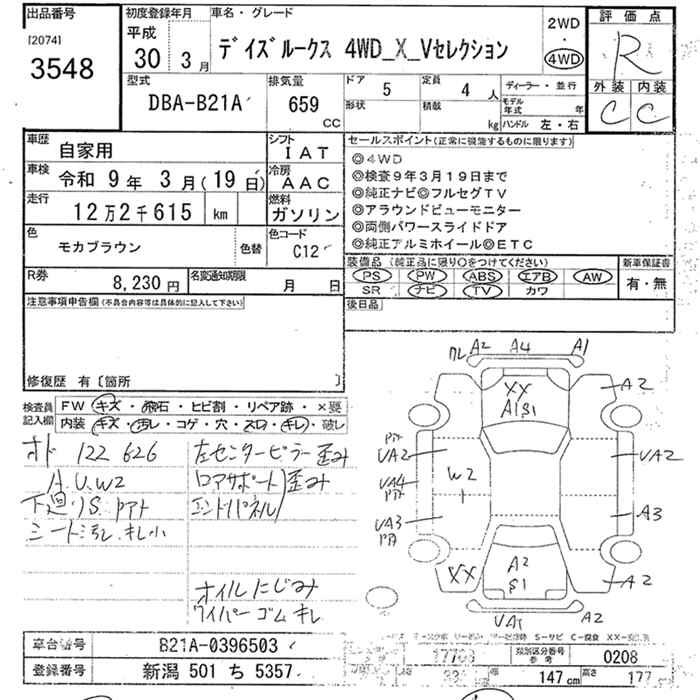 出品番号
[2074]
3548
初度登録年月
平成
30 3月
車名・グレード
デイズルークス 4WD_X_Vセレクション
2WD
・
4WD
評価点
R
外装 内装
C C
型式
DBA-B21A
排気量
659
CC
ドア 5
形状
定員 4 人
積載 kg
ディーラー・並行
モデル年式 年
ハンドル 左・右
車歴 自家用
車検 令和 9年 3月(19日)
走行 12万2千615 km
色 モカブラウン 色替
シフト IAT
冷房 AAC
燃料 ガソリン
色コード C12
セールスポイント(正常に機能するものに限ります)
◎4WD
◎検査9年3月19日まで
◎純正ナビ◎フルセグTV
◎アラウンドビューモニター
◎両側パワースライドドア
◎純正アルミホイール◎ETC
R券 8,230円
名変通知期限 月 日
装備品(純正品に限り○をつけてください)
PS PW ABS エアB AW
SR ナビ TV カワ
新車保証書
有・無
後日品
注意事項申告欄(不具合内容等は具体的に記入して下さい)
修復歴 有〔箇所 〕
検査員記入欄
FW キズ・飛石・ヒビ割・リペア跡・×要
内装 キズ・汚レ・コゲ・穴・スレ・キレ・破レ
オド 122626
A.U.W2
下廻りS アト
シート汚レ.キレ小
左センターピラー歪み
ロアサポート歪み
エンドパネル
オイルにじみ
ワイパーゴムキレ
クレ A2 A4 A1
XX
A1S1
A2
VA2
W2
VA2
VA4
VA3
A3
XX
A2
S1
A2
VA1 A2
車台番号 B21A-0396503
登録番号 新潟 501 ち 5357
S-サビ C-腐食
類別区分番号
参考
0208
幅 147cm
高さ 177